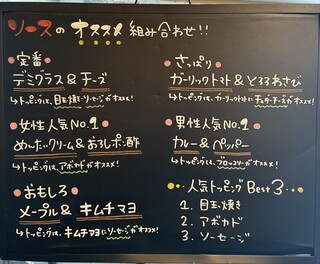 ソースの オススメ 組み合わせ!!
定番
デミグラス & チーズ
↳トッピングは、目玉焼き・ソーセージがオススメ!
さっぱり
ガーリックトマト & とろろわさび
↳トッピングは、ガーリックトマトにチェダーチーズがオススメ!
女性人気No.1
めんたいクリーム & おろしポン酢
↳トッピングは、アボカドがオススメ!
男性人気No.1
カレー & ペッパー
↳トッピングは、ブロッコリーがオススメ!
おもしろ
メープル & キムチマヨ
↳トッピングは、キムチマヨにソーセージがオススメ!
人気トッピング Best3
1. 目玉焼き
2. アボカド
3. ソーセージ